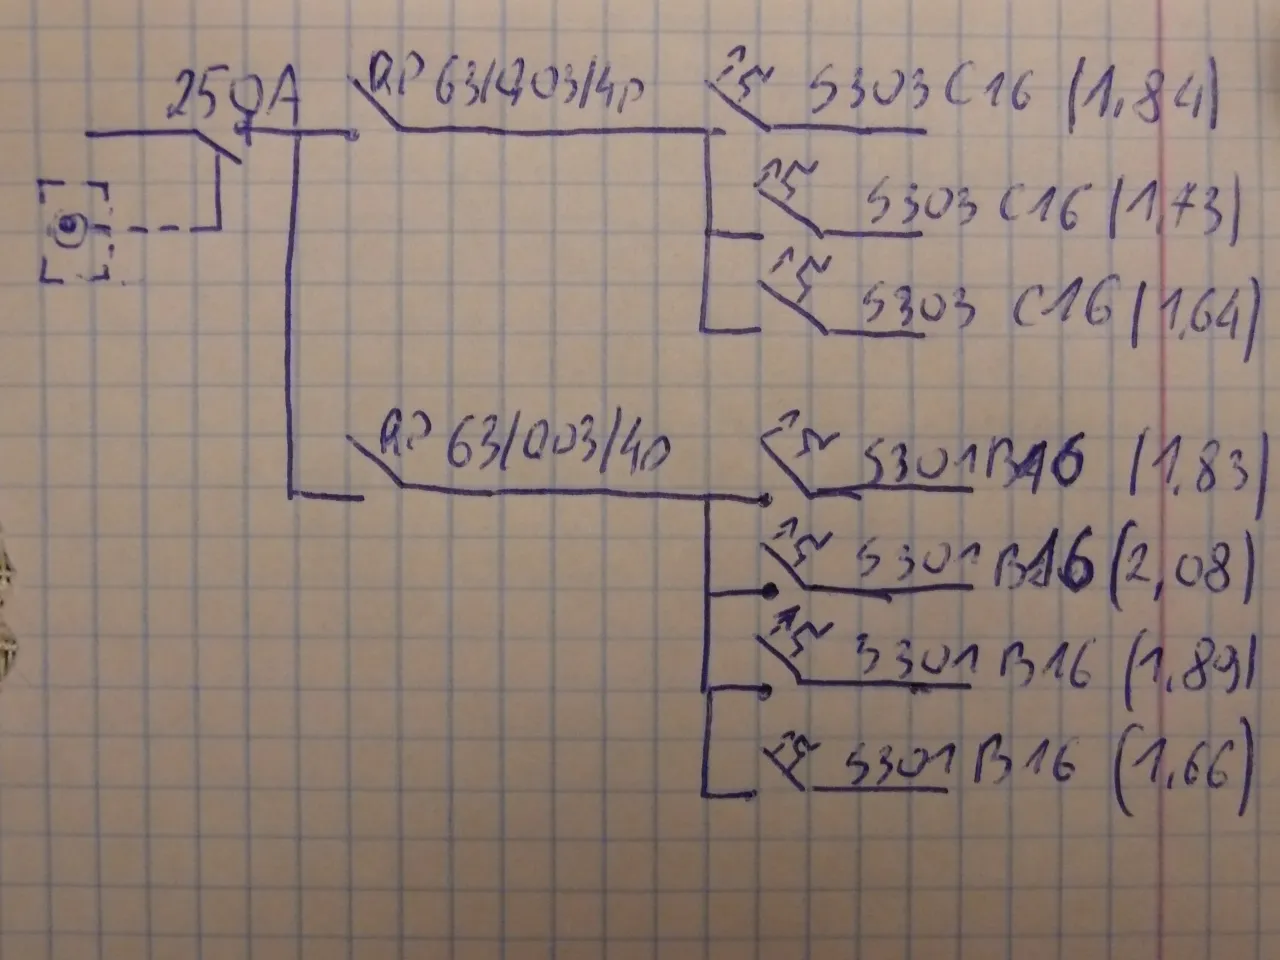 250A
RP 63/003/4p
S303 C16 (1,84)
S303 C16 (1,73)
S303 C16 (1,64)
RP 63/003/4p
S301 B16 (1,83)
S301 B16 (2,08)
S301 B16 (1,89)
S301 B16 (1,66)